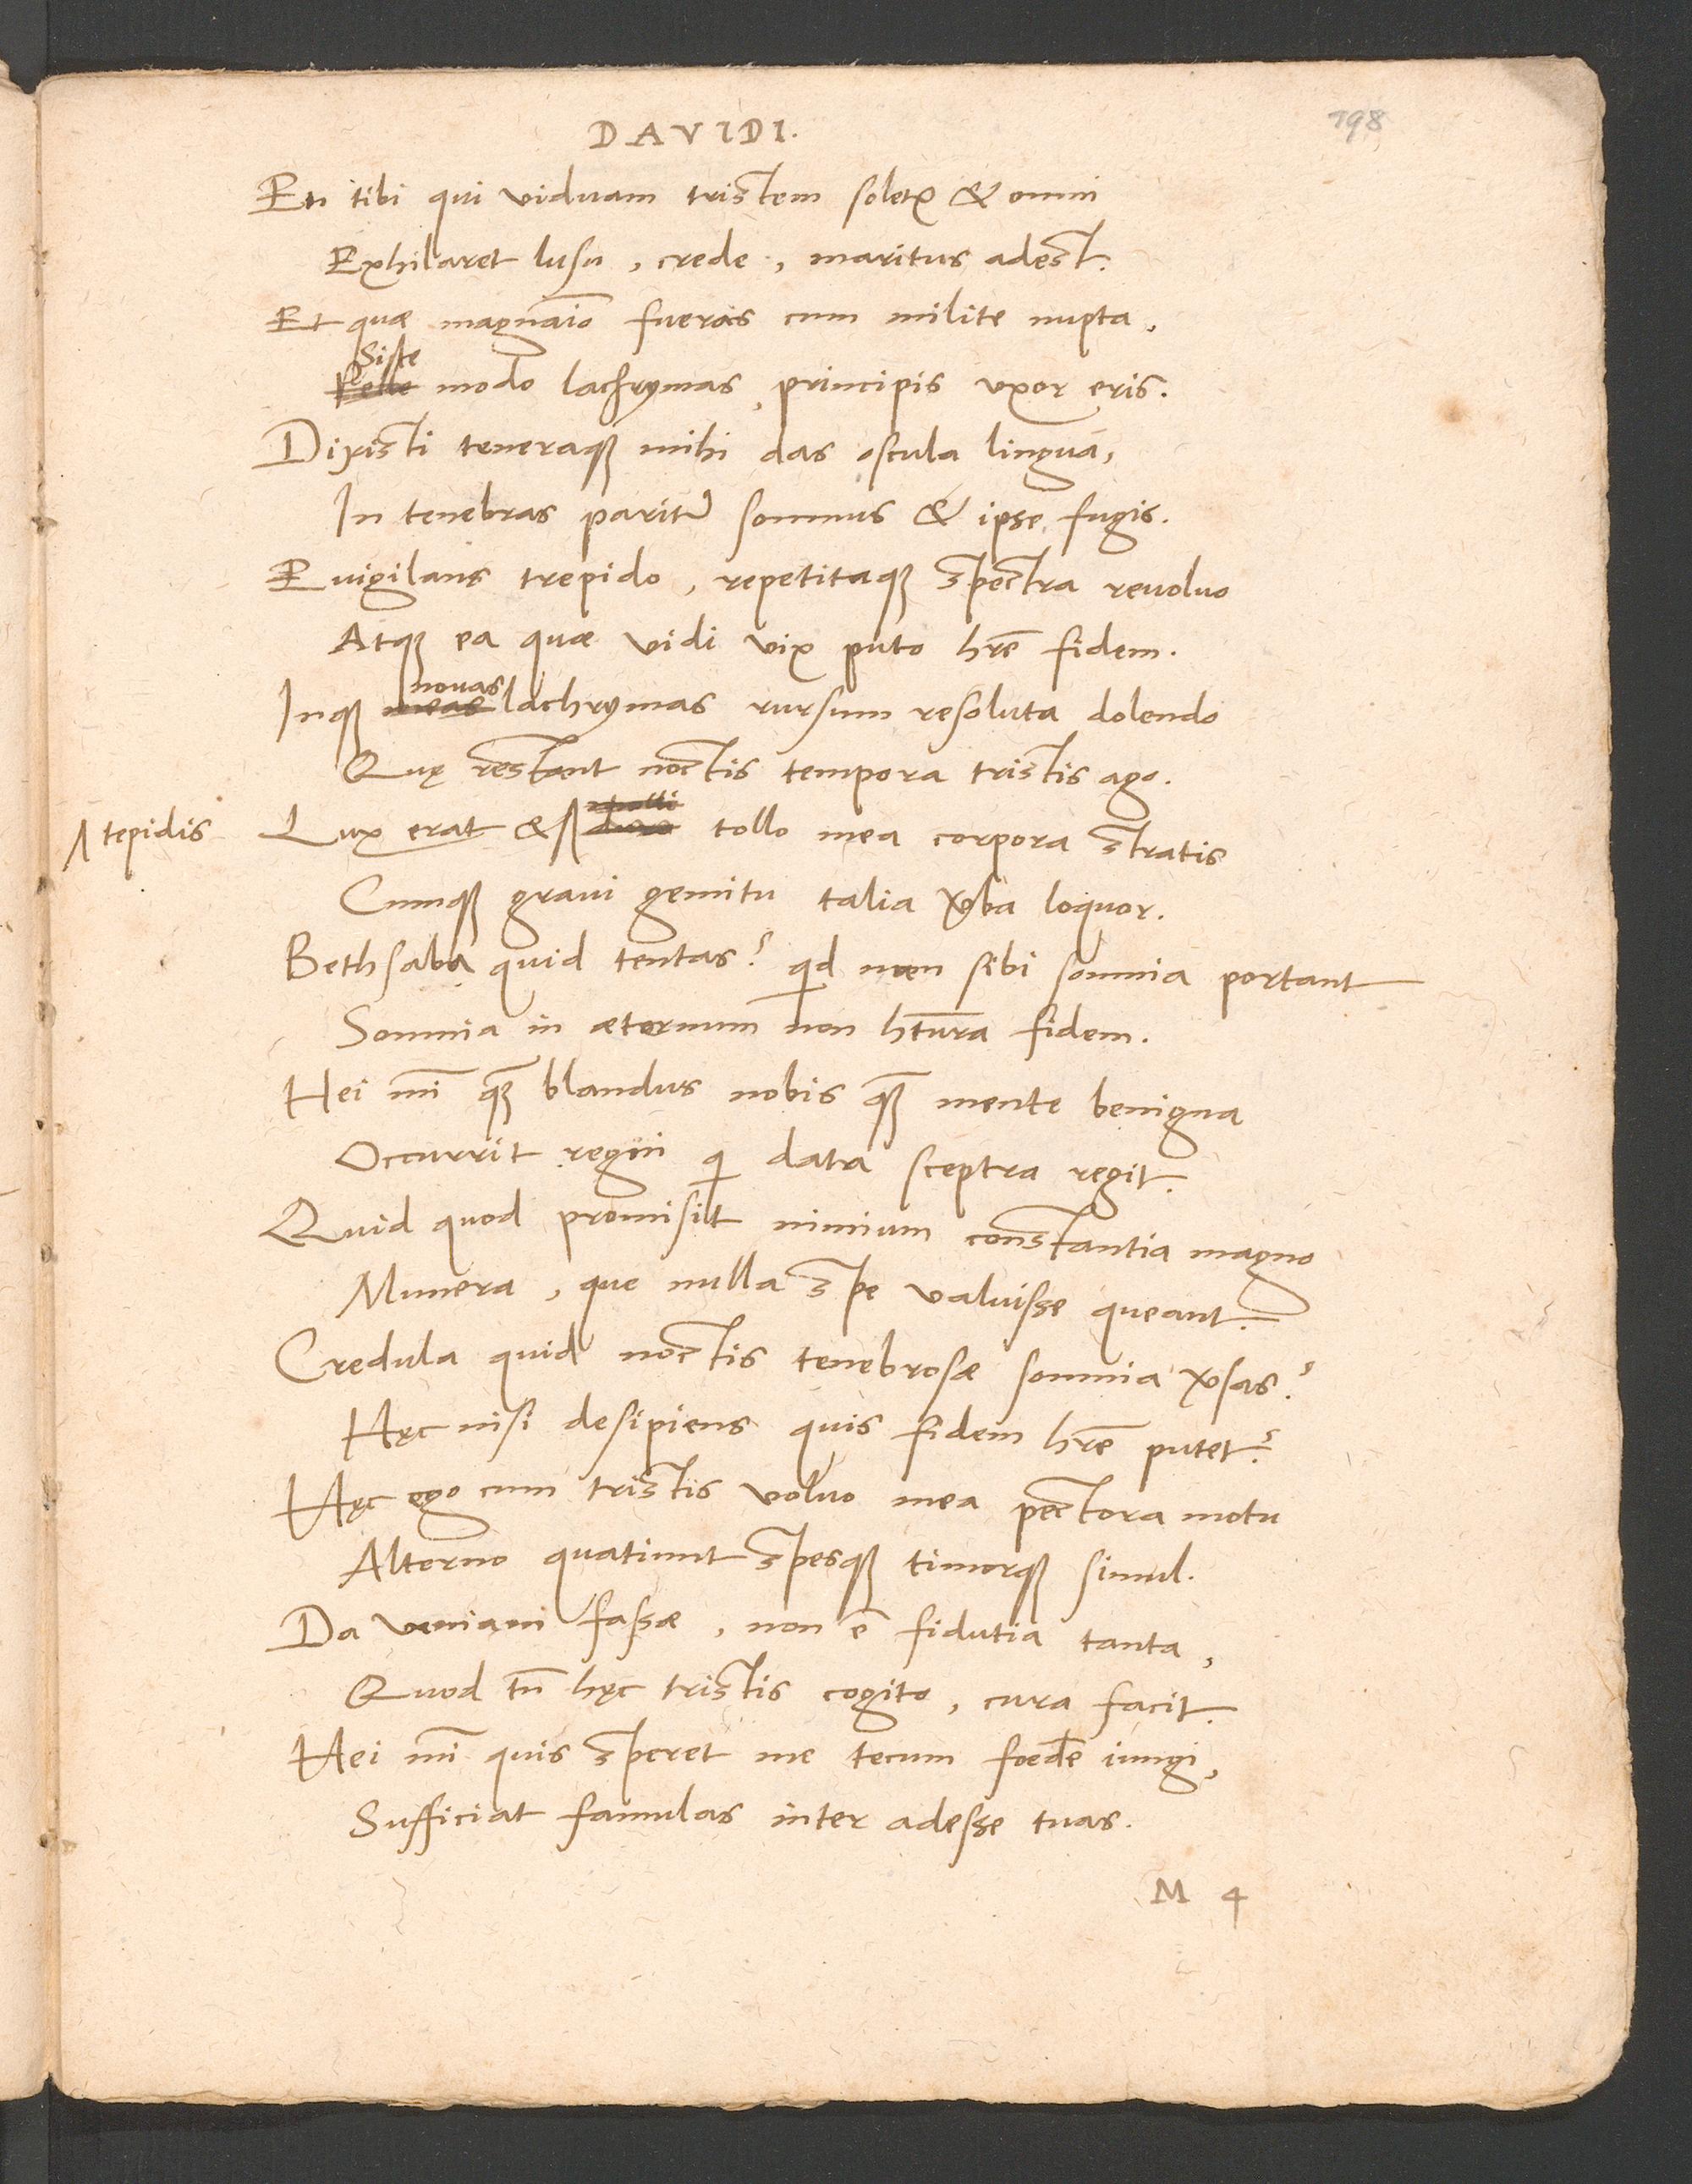 DAVIDI.
198
En tibi qui viduam tristem soletꝛ & omni
Exhilaret lusu, crede, maritus adest.
Et quæ magnaīo fueras cum milite nupta,
Siste
Pelle modo lachrymas, principis uxor eris.
Dixisti teneraqꝫ mihi das oscula lingua,
In tenebras paritr̄ somnus & ipse fugis.
Evigilans trepido, repetitaqꝫ spectra revoluo
Atqꝫ ea quæ vidi vix puto hr̄e fidem.
novas
Inqꝫ meas lachrymas rursum resoluta dolendo
Quę restant noctis tempora tristis ago.
tepidis
Lux erat & tollo mea corpora stratis
Cumqꝫ gravi gemitu talia ꝟba loquor.
Bethsaba quid tentas? qid nam sibi somnia portant
Somnia in æternum non htura fidem.
Hei mī qꝫ blandus nobis qꝫ mente benigna
Occurrit regni qi data sceptra regit.
Quid quod promisit nimium constantia magno
Munera, que nulla spe valuisse queant.
Credula quid noctis tenebrosæ somnia ꝟsas?
Hęc nisi desipiens quis fidem hr̄e putet?
Hęc ego cum tristis voluo mea pectora motu
Alterno quatiunt spesqꝫ timorqꝫ simul.
Da veniam fassæ, non ē fidutia tanta,
Quod tn̄ hęc tristis cogito, cura facit.
Hei mī quis speret me tecum foedē iungi,
Sufficiat famulas inter adesse tuas.
M 4